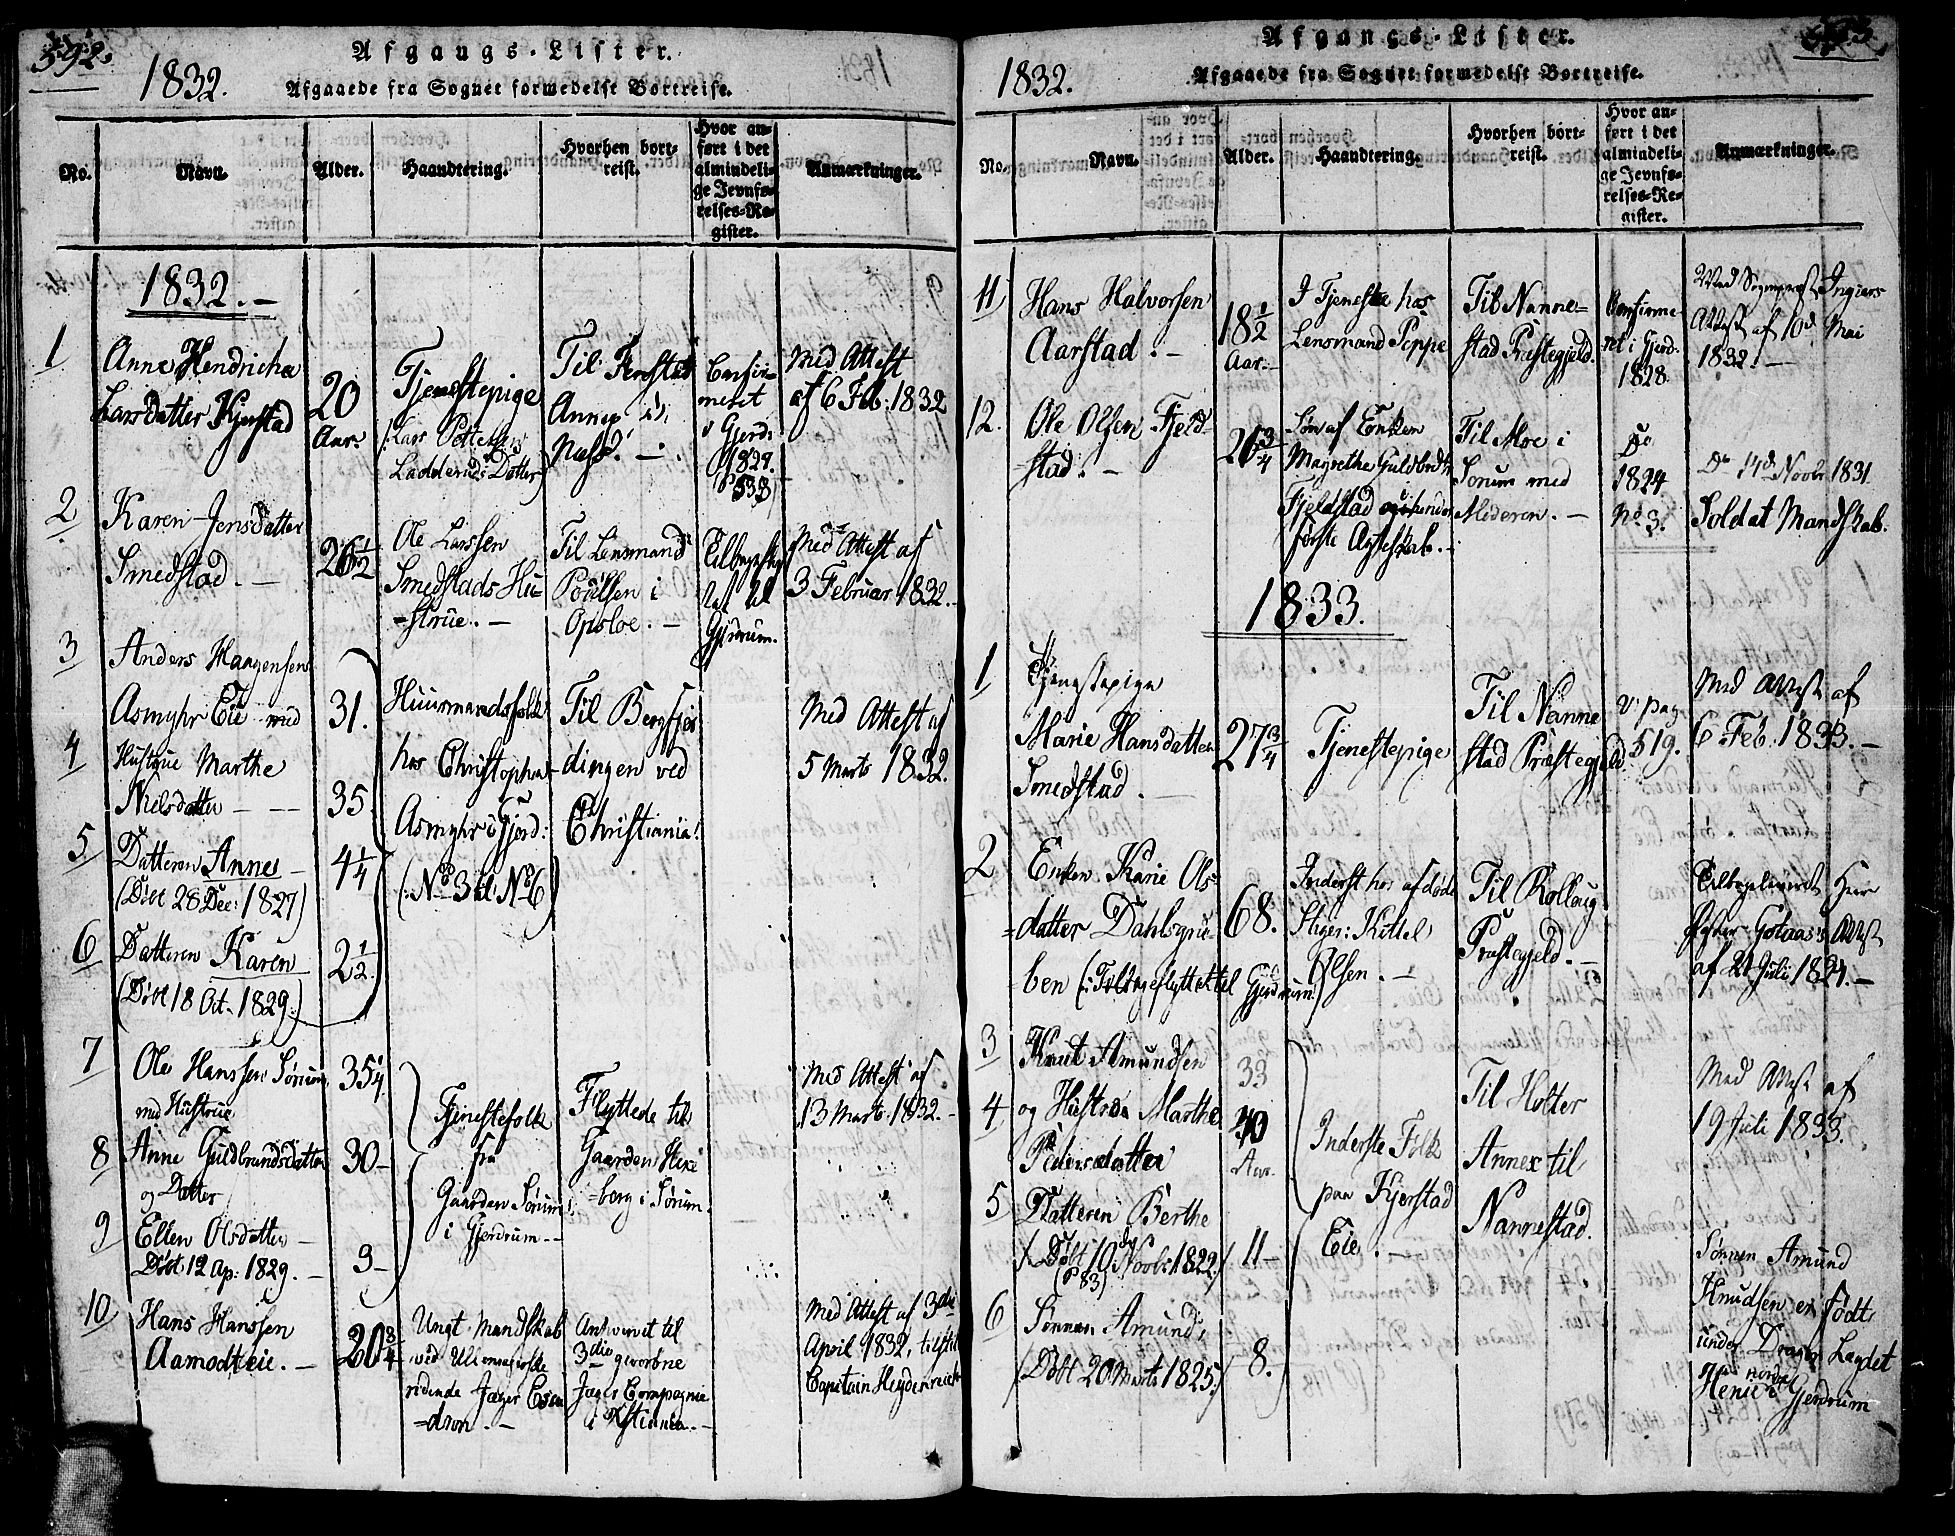 592.
Afgangs-Lister.
1832.
Afgaaede fra Sognet formedelst Bortreise.
No.
Navn.
Alder.
Haandtering.
Hvorhen bort-
reist.
Hvor an-
ført i det
almindeli-
ge Jevnfø-
relses-Re-
gister.
Anmærkninger.
1832.-
1
Anne Hendricha
Larsdatter Kjerstad
20
Aar.
Tjenestepige
(:Lars Pottemagers
Ladderuds Datter)
Annex i
Confir-
meret
i Gjerd:
Med Attest
af 6 Feb: 1832
2
Karen Jensdatter
Smedstad. -
26 1/2
Ole Larssen
Smedstads Hu-
-strue. -
Til Lensmand
Poulsen i
Opsloe. -
til
Gjerdrum.
Med Attest af
3 Februar 1832.
3
Anders Haagensen
Asmyhr Eie med
31.
Huusmandsfolk
hos Christopher
Asmyhr i Gjerd:
(:No 3 til No 6)
Til Bergfjer-
dingen ved
Christiania.
Med Attest af
5 Marts 1832.
4
Hustrue Marthe
Nielsdatter - -
35
5
Datteren Anne -
(Døbt 28 Dec: 1827)
4 1/4
6
Datteren Karen
(Døbt 18 Oct. 1829:)
2 1/2
7
Ole Hanssen Sørum
med Hustrue
35 1/4
Tjenestefolk
fra
Gaarden Sørum
i Gjerdrum--
Flyttede til
Gaarden Hexe
-berg i Sørum.
Med Attest af
13 Marts 1832.-
8
Anne Guldbrandsdatter
og Datter
30-
9
Ellen Olsdatter -
Døbt 12 Ap: 1829. -
3-
10
Hans Hanssen
Aamodteie. -
20 3/4
Ungt Mandskab
ved Ullensagerske
ridende Jæger Esca
-dron. -
Antvervet til
3die gevorbne
Jæger Compagnie
i Xstiania.-
Med Attest af 3die
April 1832,
Capitain Heydenreich
Afgangs-Lister.
1832.
Afgaaede fra Sognet formedelst Bortreise.
No.
Navn.
Alder.
Haandtering.
Hvorhen bort-
reist.
Hvor an-
ført i det
almindeli-
ge Jevnfø-
relses-Re-
gister.
Anmærkninger.
11
Hans Halvorsen
Aarstad. -
18 1/2
Aar.-
I Tjeneste hos
Lensmand Peppe
Til Nanne-
stad Præstegjeld.
Confirme-
ret i Gjerd.
1828.
Med Sognepræst Ingiers
Attest af 10d Mai
1832. -
12.
Ole Olsen Fjeld-
stad. -
26 3/4
Søn af Enken
Magrethe Guldbrdtr
Fjeldstad
første Ægteskab. -
Til Moe i
Sørum med
Moderen. -
Do
1824
No 3.
Do 14d Novbr 1831
Soldat Mandskab.
1833.
1
Tjenestepige
Marie Hansdatter
Smedstad. -
27 3/4
Tjenestepige
Til Nanne
stad Præstegjeld
v: pag.
519.
Med Attest af
6 Feb. 1833. -
2
Enken Karie Ols-
datter Dahlsgrue-
ben (: Tilbageflyttet til Gjerdrum.
68.
Inderst hos afdøde
Stiger: Kittel
Olsen. -
Til Rollaug
Præstegjeld. -
Tilbageleveret Herr
Attest
af 21 Juli 1824. -
3
Knut Amundsen
33
Inderste Folk
paa Kjerstad
Eie. -
Til Holter
Annex til
Nannestad.
Med Attest af
19 Juli 1833.
4
og Hustrue Marthe
Pedersdatter
40
Aar.
5
Datteren Berthe
(Døbt 10de Novbr 1822)
(P 83)
11-
6
Sønnen Amund
(Døbt 20 Marts 1825:)
8.
Sønnen Amund
Knudsen er født
under Lægdet
Henie i Gjerdrum